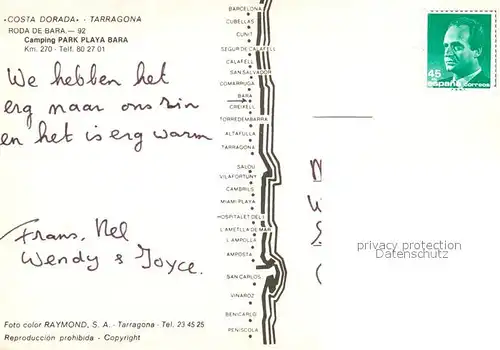 «COSTA DORADA» - TARRAGONA
RODA DE BARA. — 92
Camping PARK PLAYA BARA
Km. 270 - Telf. 80 27 01
We hebben het
erg naar ons zin
en het is erg warm
Frans, Nel
Wendy & Joyce.
Foto color RAYMOND, S. A. - Tarragona - Tel. 23 45 25
Reproducción prohibida - Copyright
BARCELONA
CUBELLAS
CUNIT
SEGUR DE CALAFELL
CALAFELL
SAN SALVADOR
COMARRUGA
BARA
CREIXELL
TORREDEMBARRA
ALTAFULLA
TARRAGONA
SALOU
VILAFORTUNY
CAMBRILS
MIAMI PLAYA
HOSPITALET DEL I.
L'AMETLLA DE MAR
L'AMPOLLA
AMPOSTA
SAN CARLOS
VINAROZ
BENICARLO
PEÑISCOLA
45
españa
correos
privacy protection
Datenschutz